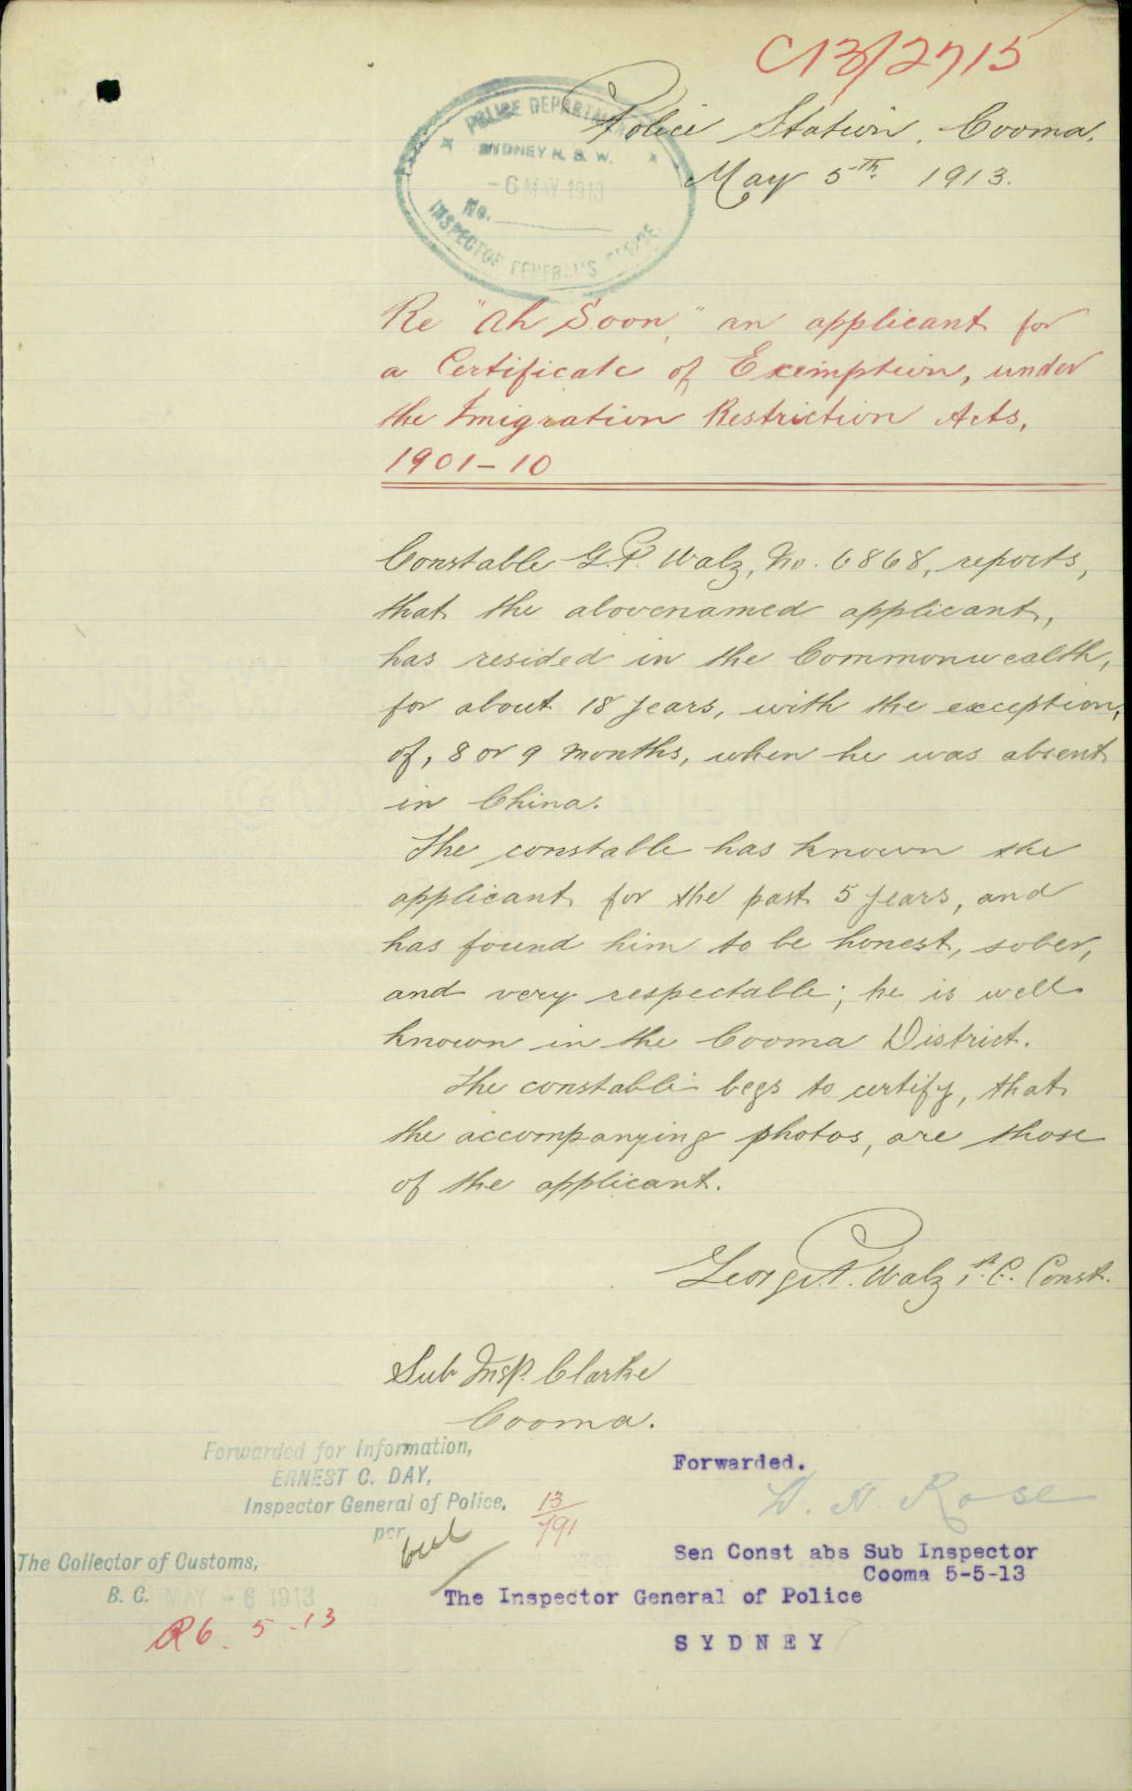 C13/2715
POLICE DEPARTMENT
SYDNEY N. S. W.
- 6 MAY 1913
No.
INSPECTOR GENERAL'S OFFICE
Police Station, Cooma.
May 5th. 1913.
Re "Ah Soon," an applicant for
a Certificate of Exemption, under
the Imigration Restriction Acts,
1901-10
Constable G.P. Walz, No. 6868, reports,
that the abovenamed applicant,
has resided in the Commonwealth,
for about 18 years, with the exception,
of, 8 or 9 months, when he was absent
in China.
The constable has known the
applicant for the past 5 years, and
has found him to be honest, sober,
and very respectable; he is well
known in the Cooma District.
The constable begs to certify, that
the accompanying photos, are those
of the applicant.
George P. Walz 1st. C. Const.
Sub Insp. Clarke
Cooma.
Forwarded for Information,
ERNEST C. DAY,
Inspector General of Police,
per
13/791
The Collector of Customs,
B. C. MAY - 6 1913
R 6. 5 - 13
Forwarded.
Rose
Sen Const abs Sub Inspector
Cooma 5-5-13
The Inspector General of Police
SYDNEY